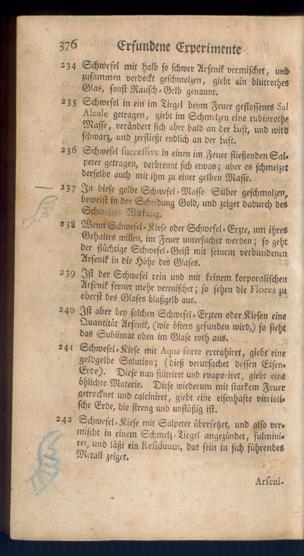 376 Erfundene Experimente
234 Schwefel mit halb so schwer Arsenik vermischet, und
zusammen verdeckt geschmolzen, giebt ein blutrothes
Glas, sonst Rausch-Gelb genannt.
235 Schwefel in ein im Tiegel beym Feuer geflossenes Sal
Alcale getragen, giebt im Schmelzen eine rubinrothe
Masse, verändert sich aber bald an der Luft, und wird
schwarz, und zerfließt endlich an der Luft.
236 Schwefel successive in einen im Feuer fließenden Sal-
peter getragen, verbrennt sich etwas; aber es schmelzet
derselbe auch mit ihm zu einer gelben Masse.
237 In diese gelbe Schwefel-Masse Silber geschmolzen,
beweist in der Scheidung Gold, und zeiget dadurch des
Schwefels Wirkung.
238 Wenn Schwefel-Kiese oder Schwefel-Erzte, um ihres
Gehaltes willen, im Feuer untersuchet werden; so geht
der flüchtige Schwefel-Geist mit seinem verbundenen
Arsenik in die Höhe des Glases.
239 Ist der Schwefel rein und mit keinem corporalischen
Arsenik ferner mehr vermischet; so sehen die Flores zu
oberst des Glases blaßgelb aus.
240 Ist aber bey solchen Schwefel-Erzten oder Kiesen eine
Quantität Arsenik, (wie öfters gefunden wird,) so sieht
das Sublimat oben im Glase roth aus.
241 Schwefel-Kiese mit Aqua forte extrahiret, giebt eine
goldgelbe Solution; (dieß verursachet dessen Eisen-
Erde). Diese nun filtriret und evaporiret, giebt eine
öhlichte Materie. Diese wiederum mit starkem Feuer
getrocknet und calciniret, giebt eine eisenhafte vitrioli-
sche Erde, die streng und unflüßig ist.
242 Schwefel-Kiese mit Salpeter übersetzet, und also ver-
mischt in einem Schmelz-Tiegel angezündet, fulmini-
ret, und läßt ein Residuum, das sein in sich führendes
Metall zeiget.
Arseni-